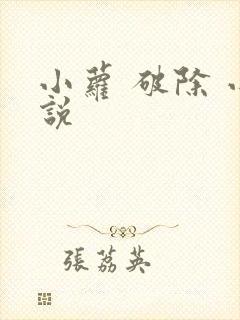 小蘿 破除 小
説
張荔英